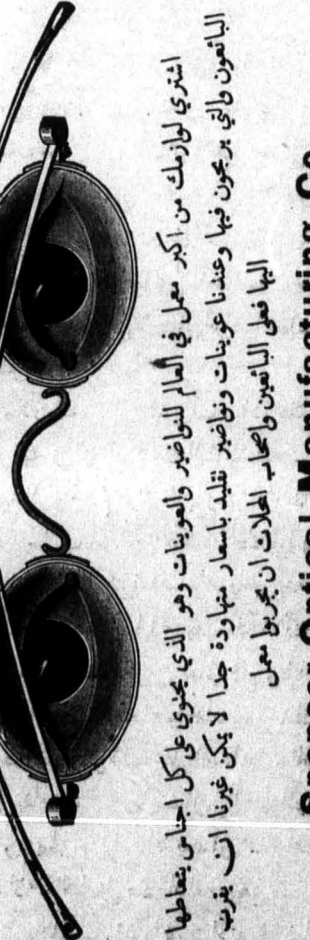 اشتري لوازمك من اكبر معمل في العالم للنواضير والعوينات وهو الذي يحتوي على كل اجناس يتعاطاها
البائعون والتي يربحون فيها وعندنا عوينات ونواضير تقليد باسعار متهاودة جدا لا يمكن غيرنا ان يقرب
اليها فعلى البائعين واصحاب المحلات ان يجربوا معمل
Spencer Optical Manufacturing Co